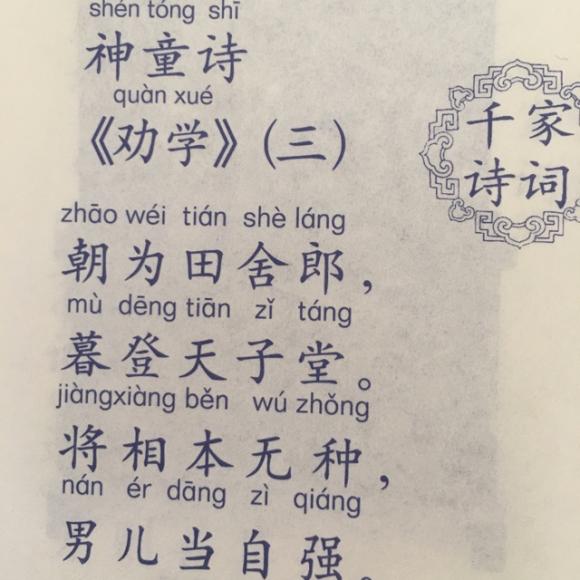 shén tóng shī
神童诗
quàn xué
《劝学》(三)
千家
诗词
zhāo wéi tián shè láng
朝为田舍郎，
mù dēng tiān zǐ táng
暮登天子堂。
jiàngxiàng běn wú zhǒng
将相本无种，
nán ér dāng zì qiáng
男儿当自强。